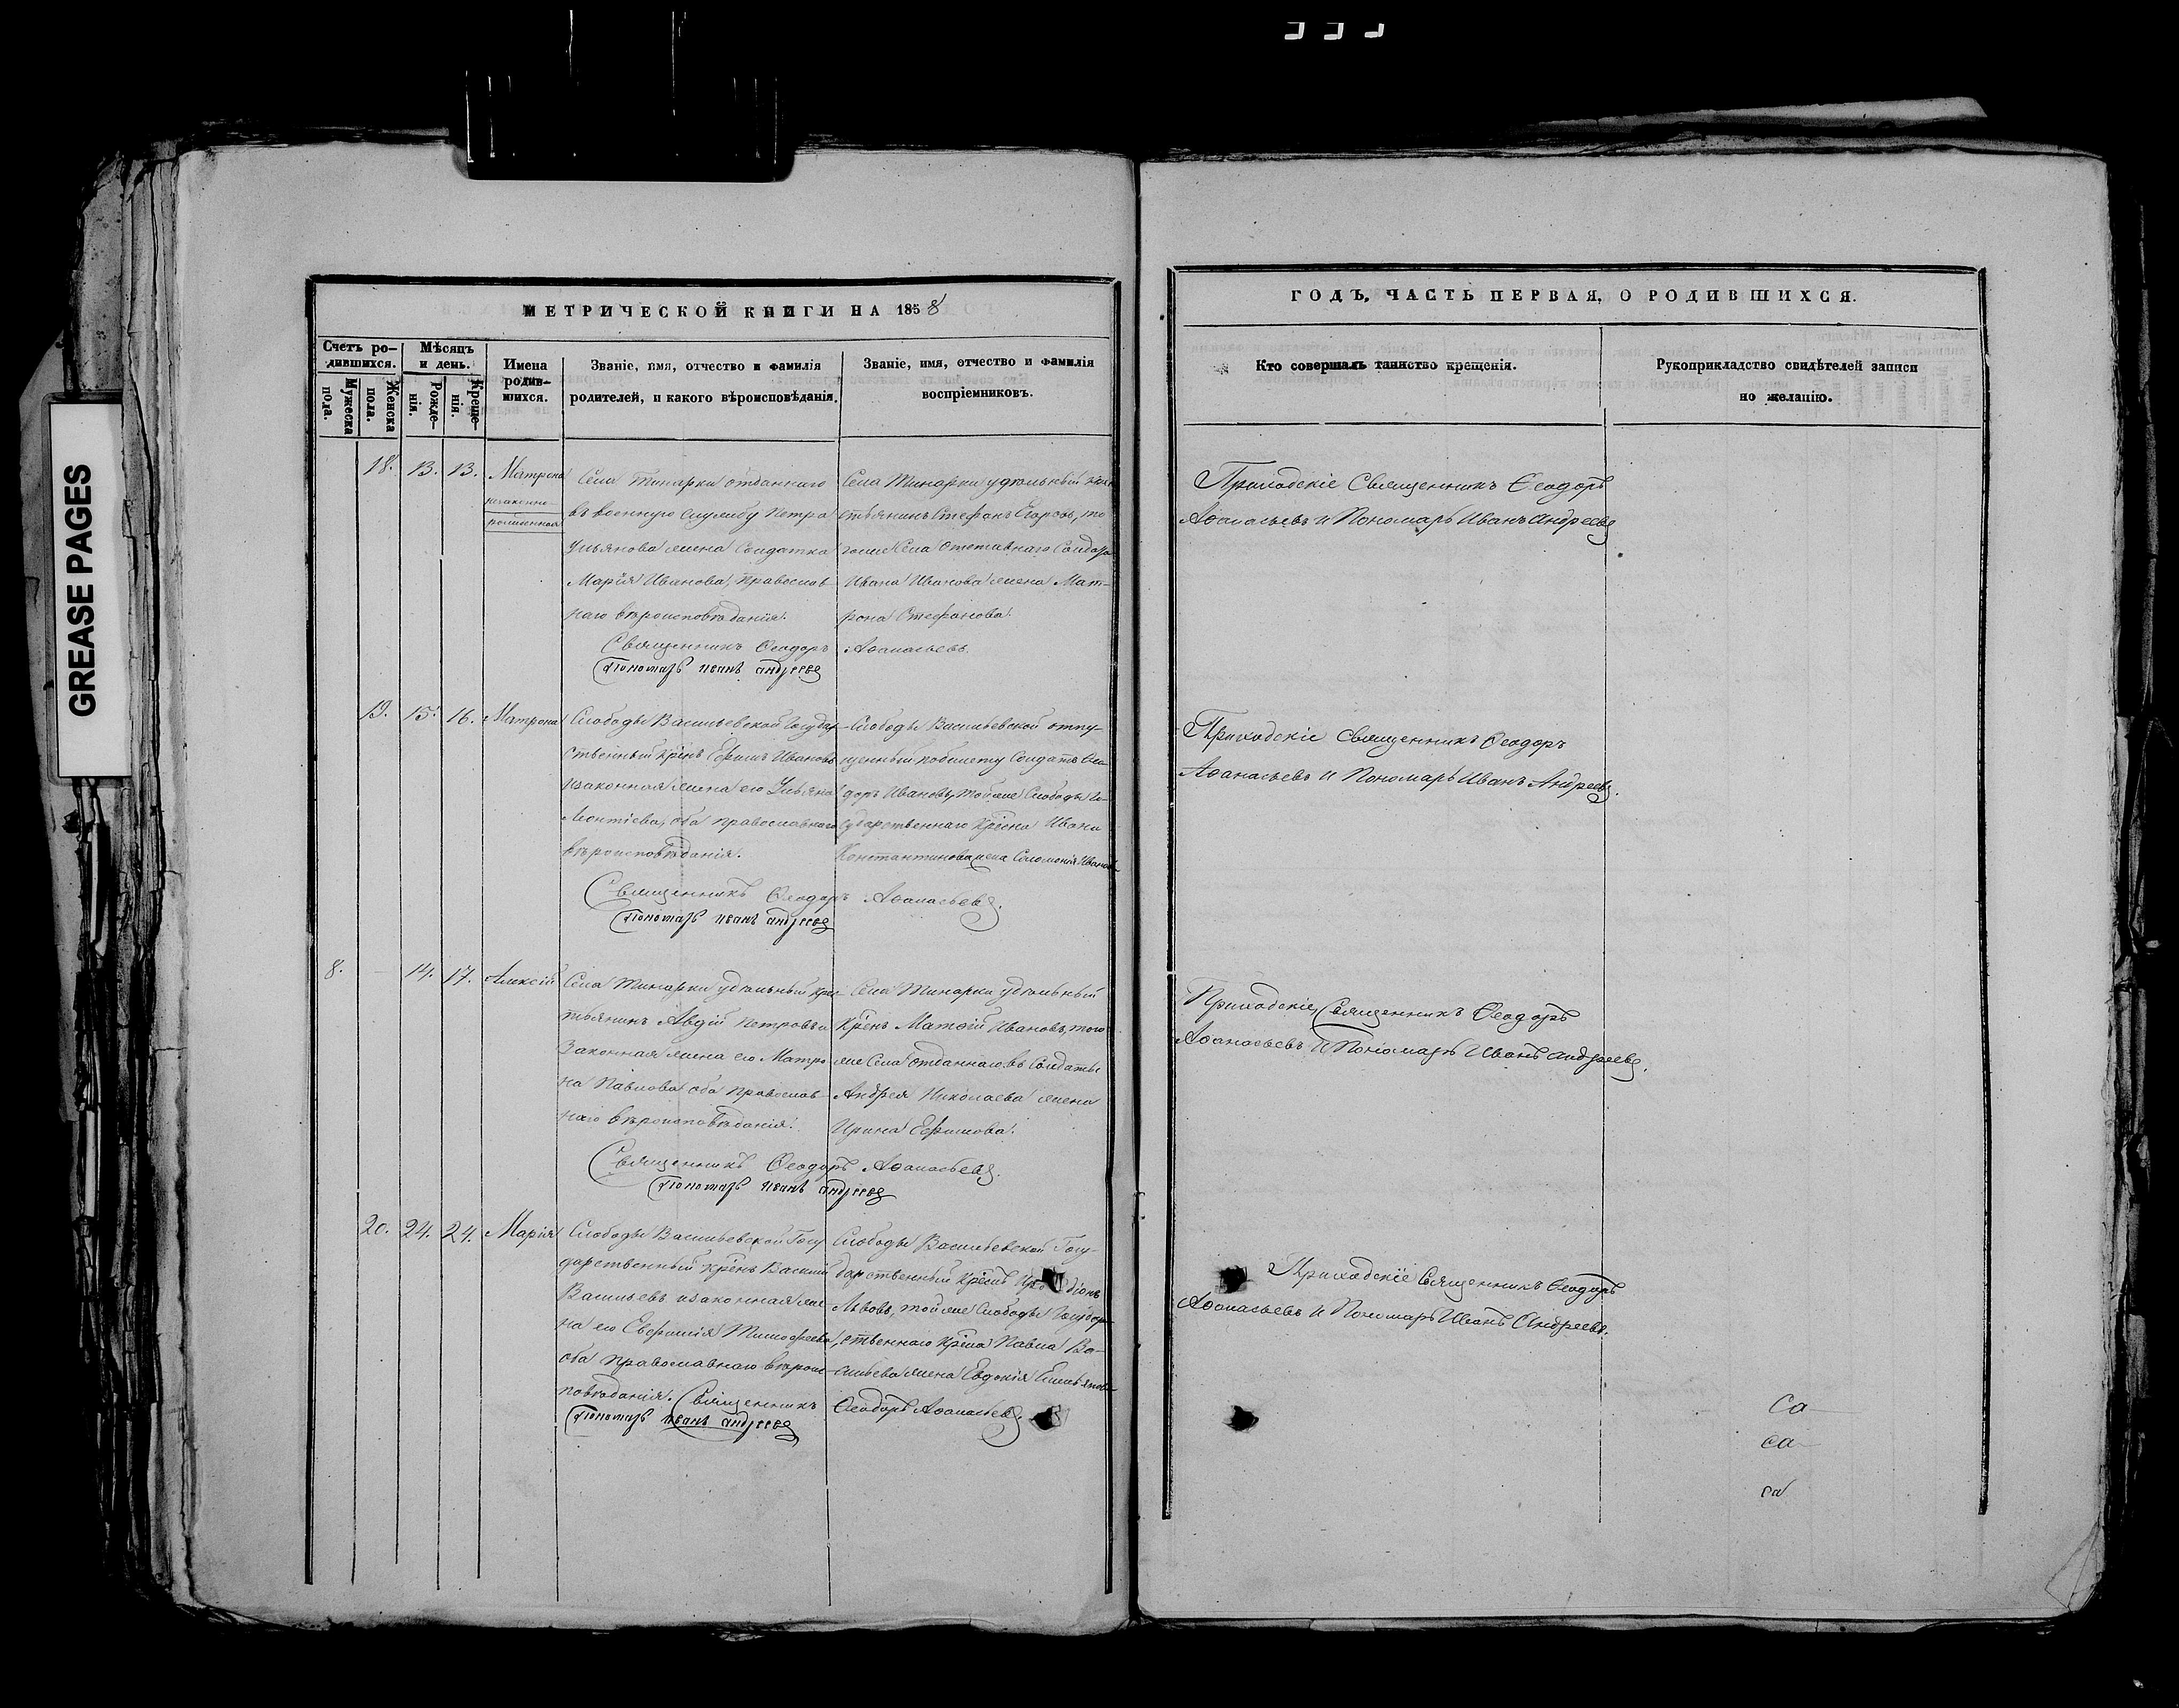 GREASE PAGES
МЕТРИЧЕСКОЙ КНИГИ НА 1858
Счетъ родившихся.
Мѣсяцъ и день.
Имена родившихся.
Званіе, имя, отчество и фамилія родителей, и какого вѣроисповѣданія.
Званіе, имя, отчество и фамилія воспріемниковъ.
Мужеска пола.
Женска пола.
Рожденія.
Крещенія.
18. 13. 13. Матрона
незаконнорожденная
Села Тинарки отданнаго
въ военную службу Петра
Ульянова жена Солдатка
Марія Иванова, православнаго вѣроисповѣданія.
Села Тинарки удѣльный
Стефанъ Егоровъ, того же Села отставнаго Солдата
Ивана Иванова жена Матрона Стефанова.
Священникъ Ѳеодоръ Аѳанасьевъ.
Пономарь Иванъ Андреевъ
19. 15. 16. Матрона
Слободы Васильевской Государственный крѣнъ Ефимъ Ивановъ
и законная жена его Ульяна
Леонтіева, оба православнаго
вѣроисповѣданія.
Слободы Васильевской отпущенный по билету Солдатъ Ѳеодоръ Ивановъ, той же Слободы Государственнаго крѣсна Ивана
Константинова жена Соломонія Иванова
Священникъ Ѳеодоръ Аѳанасьевъ.
Пономарь Иванъ Андреевъ
8. 14. 17. Алексій
Села Тинарки удѣльный крестьянинъ Авдій Петровъ и
Законная жена его Матрона Павлова оба православнаго вѣроисповѣданія.
Села Тинарки удѣльный
крѣнъ Матѳій Ивановъ, того
же Села отданнаго въ Солдаты
Андрея Николаева жена
Ирина Ефимова.
Священникъ Ѳеодоръ Аѳанасьевъ.
Пономарь Иванъ Андреевъ
20. 24. 24. Марія
Слободы Васильевской Государственный крѣнъ Василій
Васильевъ и законная жена его Евфимія Тимофеева,
оба православнаго вѣроисповѣданія.
Слободы Васильевской Государственный крѣснъ
Львовъ, той же Слободы Государственнаго крѣсна Павла Васильева жена Евдокія
Священникъ Ѳеодоръ Аѳанасьевъ.
Пономарь Иванъ Андреевъ
ГОДЪ, ЧАСТЬ ПЕРВАЯ, О РОДИВШИХСЯ.
Кто совершалъ таинство крещенія.
Рукоприкладство свидѣтелей записи по желанію.
Приходскіе Священникъ Ѳеодоръ
Аѳанасьевъ и Пономарь Иванъ Андреевъ
Приходскіе Священникъ Ѳеодоръ
Аѳанасьевъ и Пономарь Иванъ Андреевъ.
Приходскіе, Священникъ Ѳеодоръ
Аѳанасьевъ и Пономарь Иванъ Андреевъ.
Приходскіе Священникъ Ѳеодоръ
Аѳанасьевъ и Пономарь Иванъ Андреевъ.
Са
са
са